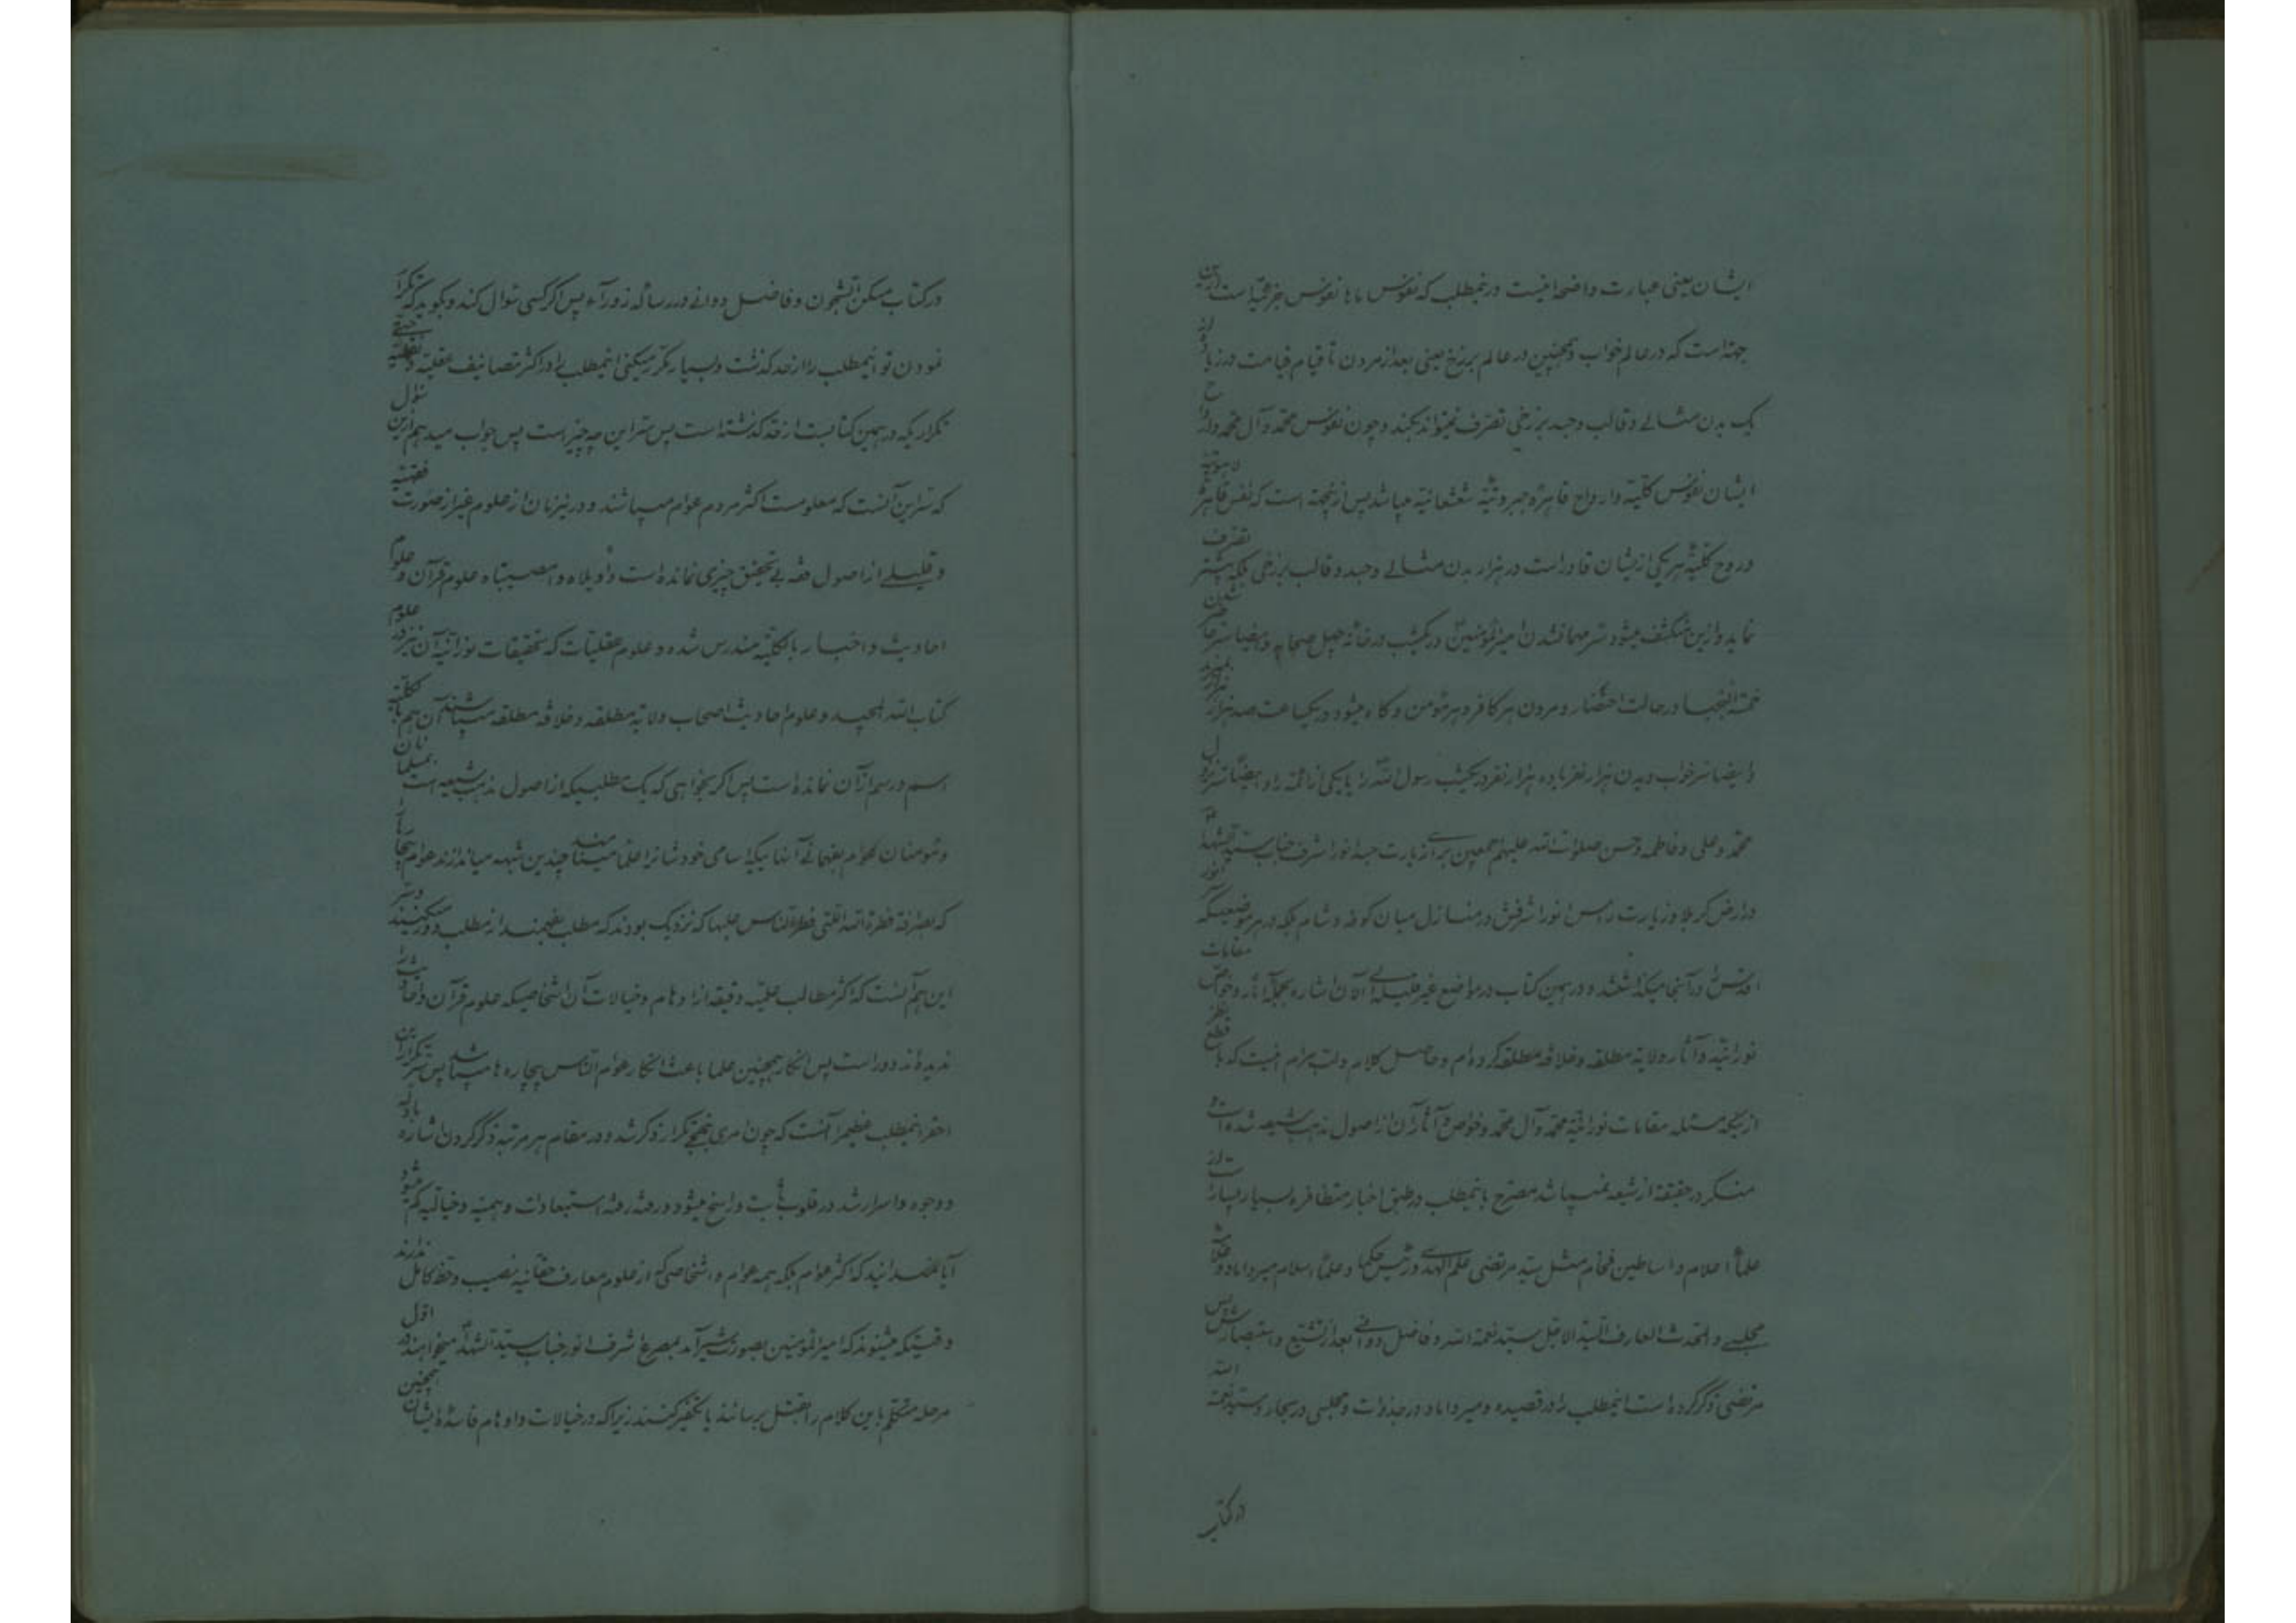 ایشان یعنی عبارت واضحه اینست درینمطلب که نفوس ماها نفوس جزئیه است ازین
جهة است که در عالم خواب و همچنین در عالم برزخ یعنی بعد از مردن تا قیام قیامت در زیاد از
یک بدن مثالی و قالب و جسد برزخی تصرف نمیتواند بکند و چون نفوس محمد و آل محمد و ارواح
ایشان نفوس کلیة و ارواح قاهره جبروتیة شعشعانیة میباشد پس ازینجهة است که نفس قاهرة لاهوتیه
و روح کلیة هر یکی از ایشان قادر است در هزار بدن مثالی و جسد و قالب برزخی بلکه بیشتر تصرف
نماید و ازین منکشف میشود سر مهمان شدن امیر المؤمنین در یکشب در خانه چهل صحابه و ایضا سر حاضر شدن
خمسة النجبا در حالت احتضار و مردن هر کافر و هر مؤمن و گاه میشود در یکساعت صد هزار
و ایضا سر خواب دیدن هزار نفر یا ده هزار نفر در یکشب رسول الله را یا یکی از ائمه را و ایضا سر نزول
محمد و علی و فاطمه و حسن صلوات الله علیهم اجمعین برای زیارت جسد انور اشرف جناب سید الشهداء
در ارض کربلا و زیارت راس انور اشرفش در منازل میان کوفه و شام بلکه در هر موضعیکه
اقدس را در آنجا میگذاشتند و در همین کتاب در مواضع غیر قلیله الی الآن اشاره بجملة آثار و خواص مقامات
نورانیة و آثار ولایة مطلقه و خلافة مطلقه کرده‌ام و حاصل کلام و لب مرام اینست که با قطع نظر
ازینکه مسئله مقامات نورانیة محمد و آل محمد و خواص و آثار آن از اصول مذهب شیعه شده است و
منکر در حقیقة از شیعه نمیباشد مصرح باینمطلب در طبق اخبار متظافره بسیار بسیار است از
علماء اعلام و اساطین فخام مثل سید مرتضی علم الهدی و رئیس حکما و علماء اسلام میر داماد و
مجلسی و المحدث العارف السید الاجل سید نعمة الله و فاضل دوانی بعد از تشیع و استبصارش پس
مرتضی ذکر کرده است اینمطلب را در قصیده و میر داماد در جذوات و مجلسی در بحار و سید نعمة الله
در کتاب
در کتاب مسکن الشجون و فاضل دوانی در رساله زوراء پس اگر کسی سؤال کند و بگوید که تکرار
نمودن تو اینمطلب را از حد گذشت و بسیار مکرر میکنی اینمطلب را در اکثر تصانیف عقلیة و نقلیة حتی
تکراریکه در همین کتابست از حد گذشته است پس سر این چه چیز است پس جواب میدهم ازین سؤال
که سر این آنست که معلومست اکثر مردم عوام میباشند و درین زمان از علوم غیر از صورت فقهیه
و قلیلی از اصول فقه بی تحقیق چیزی نمانده است واویلاه و امصیبتاه علوم قرآن و علوم
احادیث و اخبار بالکلیة مندرس شده و علوم عقلیات که تحقیقات نورانیة آن نیز در علوم
کتاب الله المجید و علوم احادیث اصحاب ولایة مطلقه و خلافة مطلقه میباشند آن هم بالکلیه
اسم و رسم از آن نمانده است پس اگر بخواهی که یک مطلبیکه از اصول مذهب شیعه است بمسلمانان
و مؤمنان عوام بفهمانی آنهاییکه اسامی خودشانرا علما مینامند چندین شبهه میاندازند عوام بیچاره
که بصرافة فطرة الله التی فطر الناس علیها که نزدیک بودند که مطلب بفهمند از مطلب دورتر میکنند
این هم آنست که اکثر مطالب علمیه دقیقه از اوهام و خیالات آن اشخاصیکه علوم قرآن و احادیث را
ندیده‌اند دور است پس انکار همچنین علما باعث انکار عوام الناس بیچاره‌ها میباشد پس سر تکرار این
احقر اینمطلب عظیم را آنست که چون امری بهیچ تکرار ذکر شد و در مقام هر مرتبه ذکر کردن اشاره بادله
و وجوه و اسرار شد در قلوب ثابت و راسخ میشود و رفته رفته استبعادات وهمیة و خیالیه کم میشود
آیا نمیدانید که اکثر عوام بلکه همه عوام و اشخاصیکه از علوم معارف حقانیه نصیب و حظ کامل ندارند
وقتیکه میشنوند که امیر المؤمنین بصورت شیر آمد بمصرع اشرف انور جناب سید الشهداء میخواهند در اول
مرحله متکلم باین کلام را بقتل برسانند یا تکفیر کنند زیرا که در خیالات و اوهام فاسدة ایشان همچنین